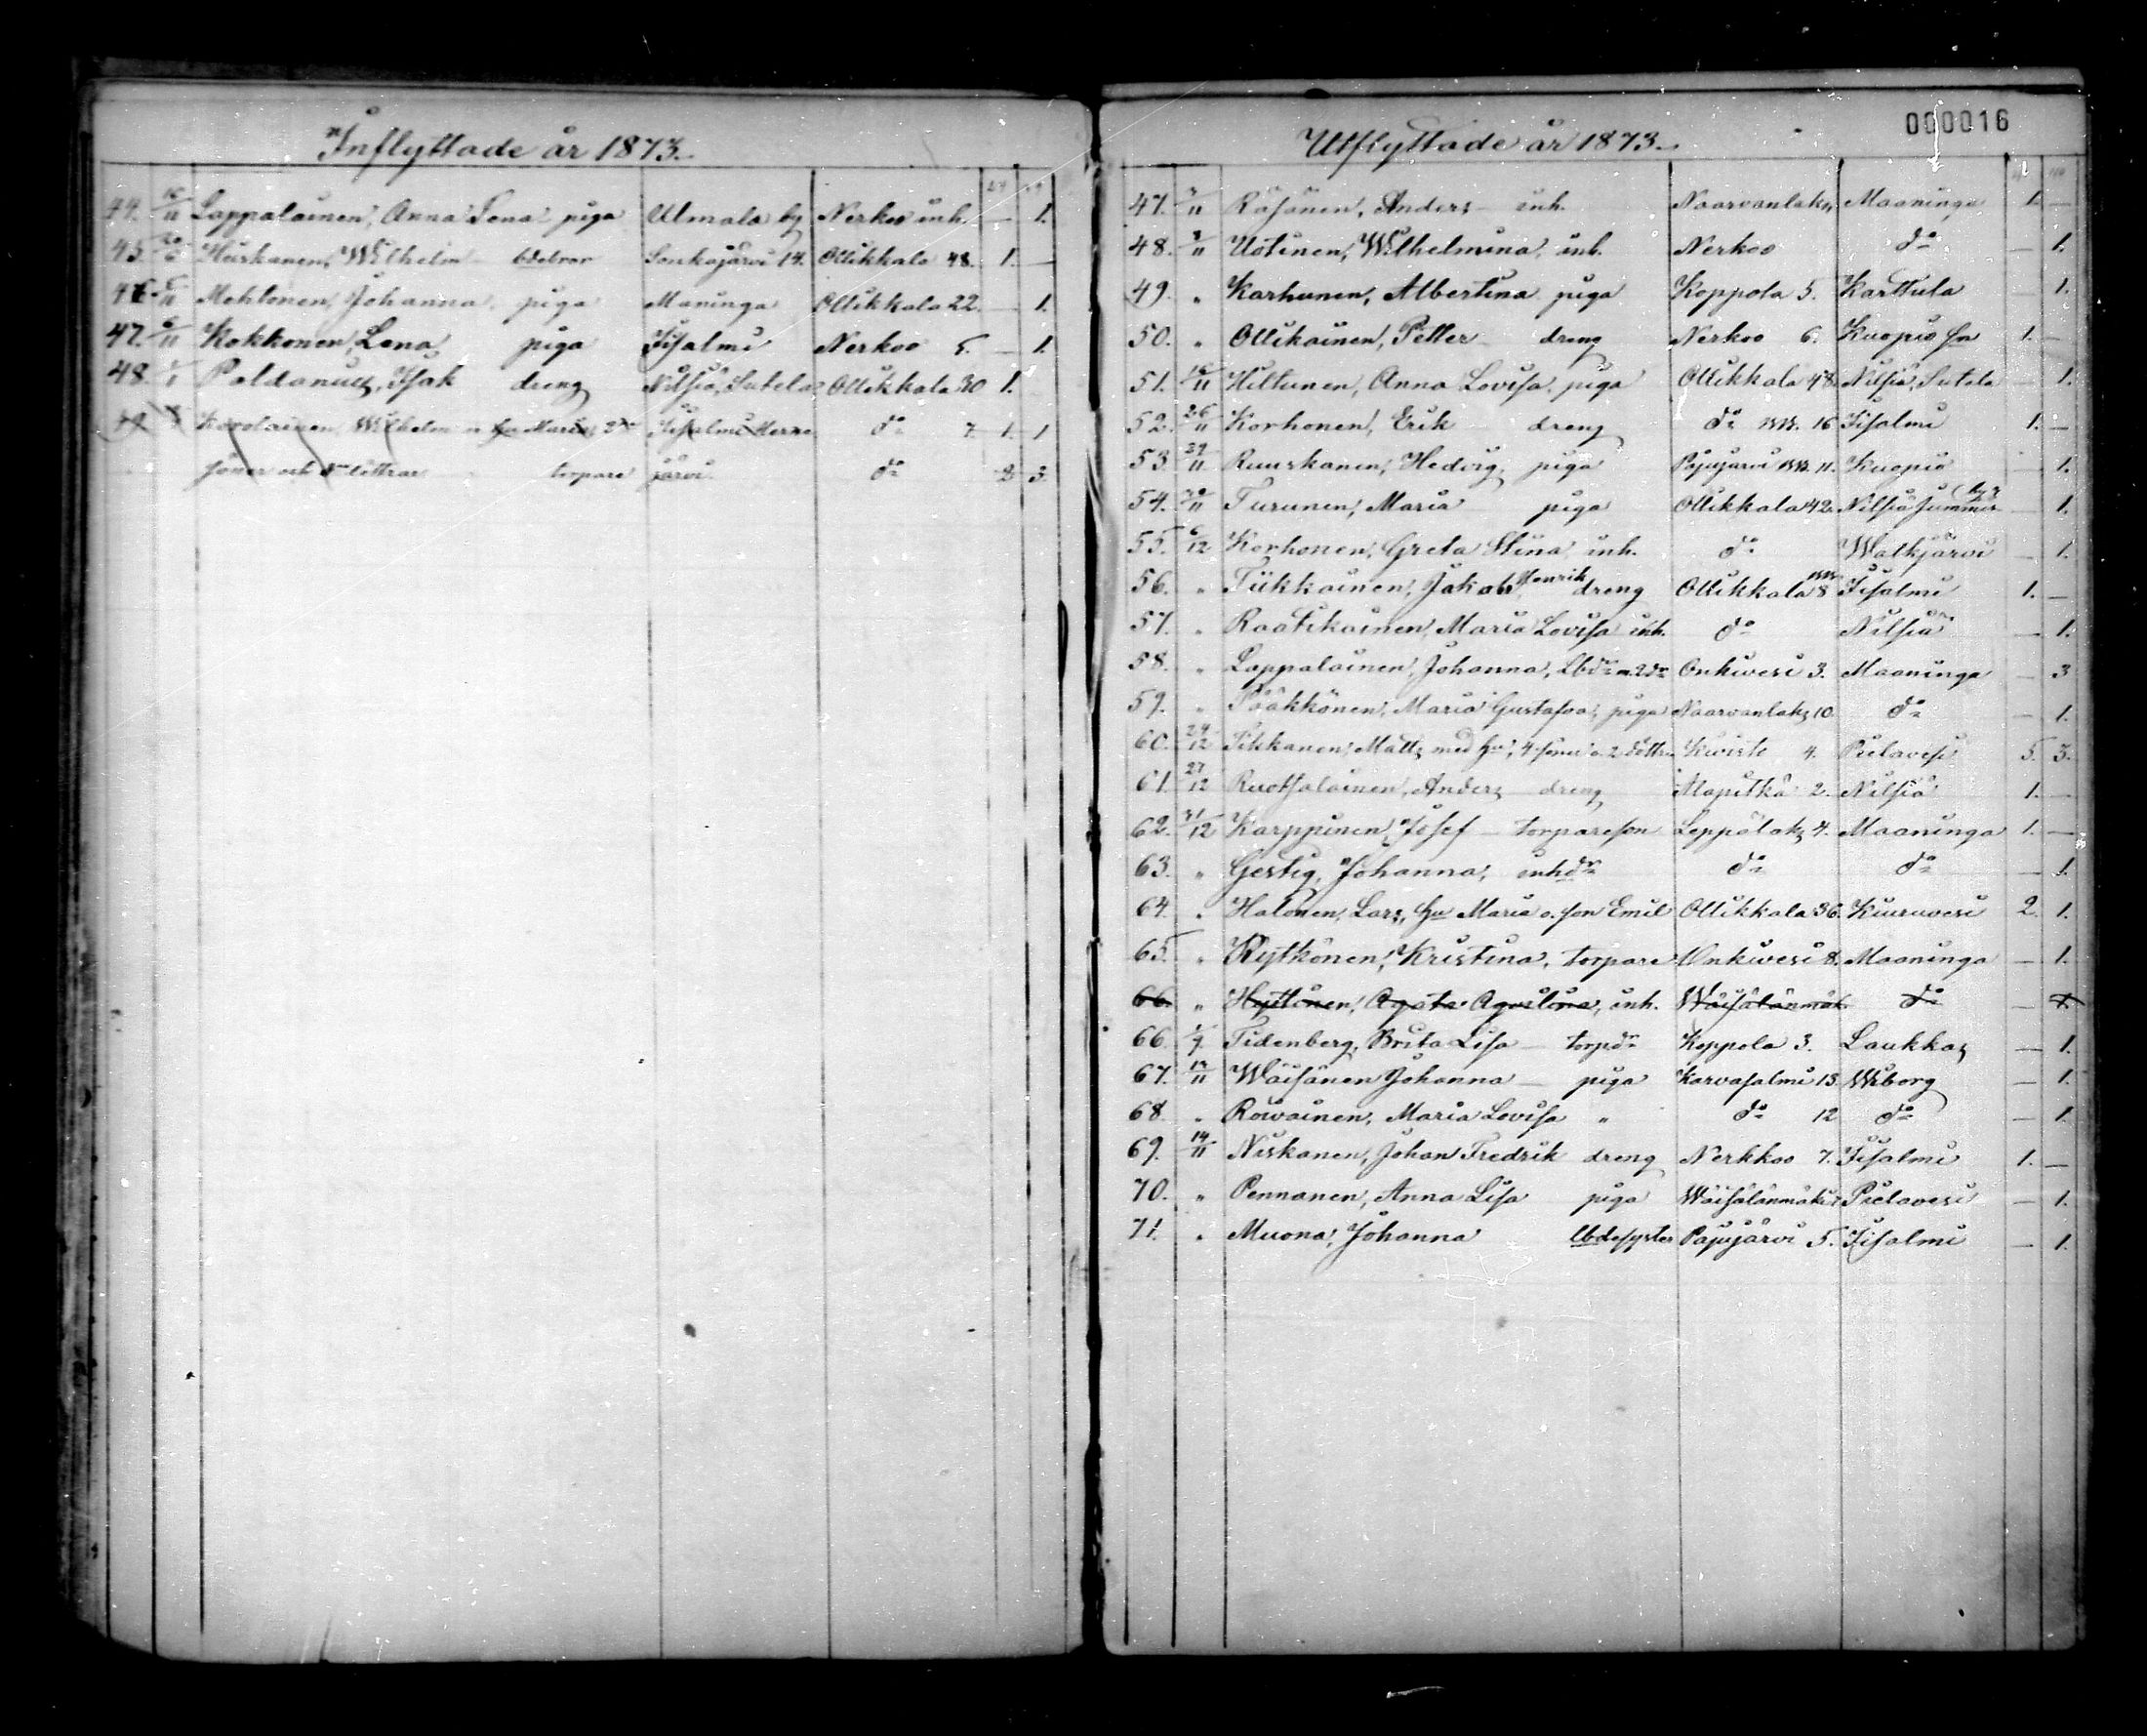 Inflyttade år 1873.
44. 16/11 Lappalainen, Anna Lena piga Ulmala by Nerkoo inh. — 1.
45. Huskanen, Wilhelm Sonkajärvi 14. Ollikkala 48. 1. —
46. Mehtonen, Johanna, piga Maninga Ollikkala 22. — 1.
47. Kokkonen, Lena piga Iisalmi Nerkoo 5. — 1.
48. Paldanius, Isak dreng Nilsiä, Sutela Ollikkala 30 1.
49. Karolainen, Wilhelm m hu Maria, 2ne Iisalmi Nerko do 7. 1. 1
söner och döttrar torpare järvi do 2 3.
000016
Utflyttade år 1873.
47. 3/11 Räsänen, Anders inh. Naarvanlaks Maaninga 1. —
48. 3/11 Uotinen, Wilhelmina, inh. Nerkoo do — 1.
49. " Karhunen, Albertina piga Koppola 5. Karttula 1.
50. " Ollikainen, Petter dreng Nerkoo 6. Kuopio sn 1. —
51. 16/11 Hiltunen, Anna Lovisa, piga Ollikkala 48. Nilsiä, Sutela — 1.
52. 26/11 Korhonen, Erik dreng do 16 Iisalmi 1. —
53. 29/11 Ruuskanen, Hedvig, piga Pajujärvi 11. Kuopio 1.
54. Turunen, Maria piga Ollikkala 42. Nilsiä — 1.
55. 6/12 Korhonen, Greta Stina inh. do Walkjärvi — 1.
56. " Tiikkainen, Jakob Henrik dreng Ollikkala 8 Iisalmi 1. —
57. " Raatikainen, Maria Lovisa inh. do Nilsiä — 1.
58. " Lappalainen, Johanna, Lbdr m. 2 dr Onkivesi 3. Maaninga — 3
59. " Pääkkönen, Maria Gustafva, piga Naarvanlaks 10. do — 1.
60. 24/12 Tikkanen, Matts med hu, 4 söner o. 2 döttrar Kwiste 4. Pielavesi 5. 3.
61. 27/12 Ruotsalainen, Anders dreng Mapitkä 2. Nilsiä 1. —
62. 31/12 Karppinen, Josef torpareson Leppälaks 4. Maaninga 1. —
63. " Gestig, Johanna, inhdr do do — 1
64. " Halonen, Lars, hu Maria o. son Emil Ollikkala 36. Kiuruvesi 2. 1.
65. " Rytkönen, Kristina, torpare Onkivesi 8. Maaninga — 1.
66. " Hyttinen, Agata Agustina, inh. Wäisälänmäk. do — 1.
66. Tidenberg, Brita Lisa torpdr Koppola 3. Laukkas — 1.
67. Wäisänen Johanna piga Karvasalmi 13. Wiborg — 1.
68. " Rowainen, Maria Lovisa " do 12 do — 1.
69. 14/11 Niskanen, Johan Fredrik dreng Nerkkoo 7. Iisalmi 1. —
70. " Pennanen, Anna Lisa piga Wäisälänmäki Pielavesi — 1.
71. " Muona, Johanna lbdesyster Pajujärvi 5. Iisalmi — 1.